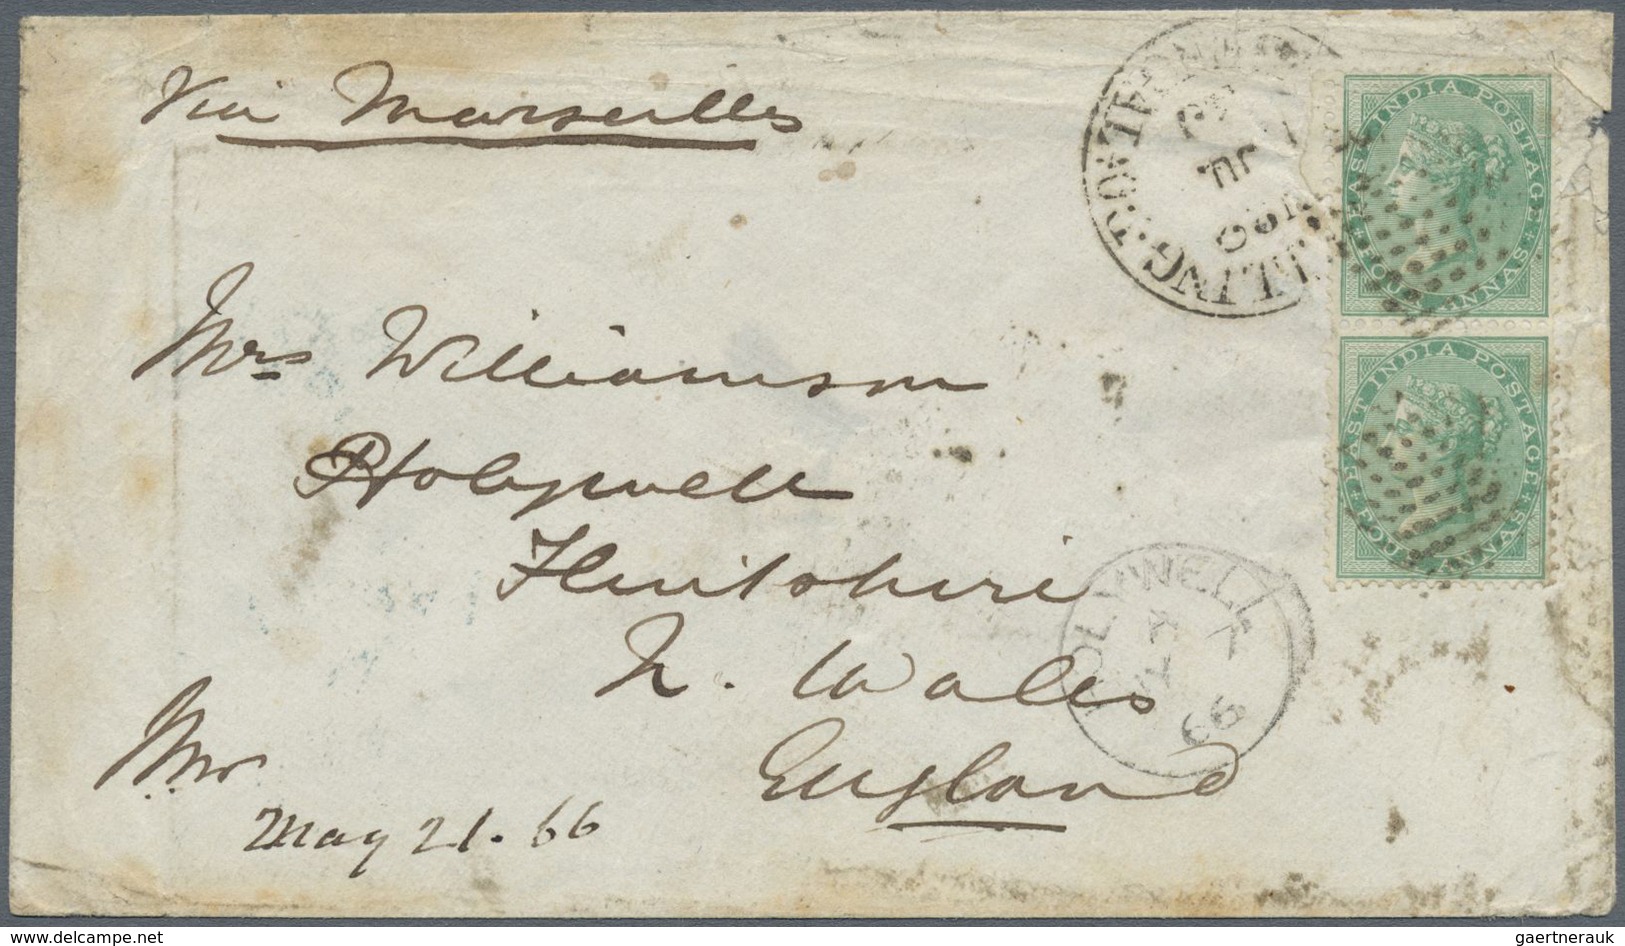 Via Marseilles
EAST INDIA POSTAGE
FOUR ANNAS
EAST INDIA POSTAGE
FOUR ANNAS
JU
Mrs Williamson
Holywell
Flintshire
N. Wales
England
HOLYWELL
66
May 21. 66
www.delcampe.net
gaertnerauk